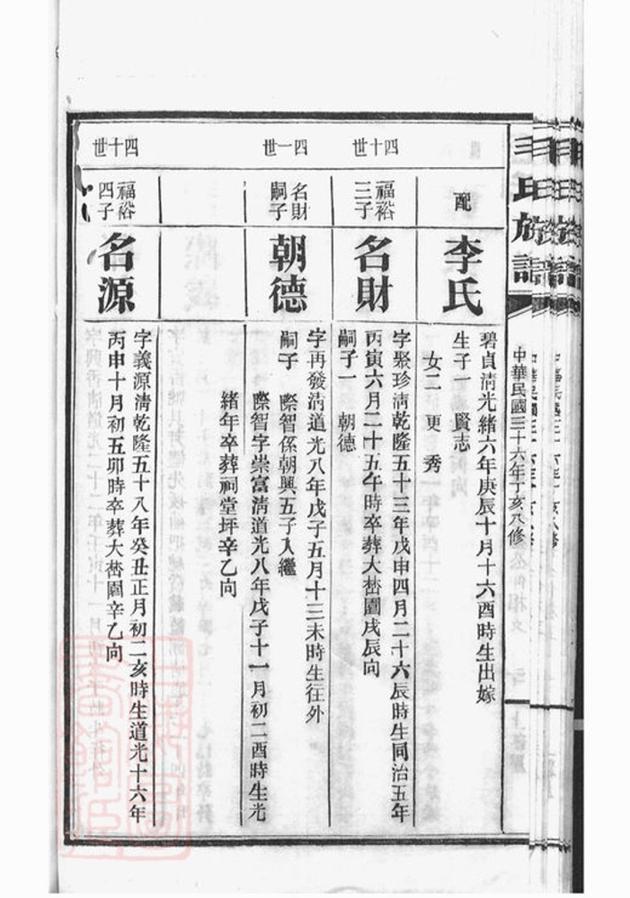 毛氏族譜
中華民國三十六年丁亥八修
配
李氏
碧貞清光緒六年庚辰十月十六酉時生出嫁
生子一 賢志
女二 更 秀
四十世
福裕三子
名財
字聚珍清乾隆五十三年戊申四月二十六辰時生同治五年
丙寅六月二十五午時卒葬大嵆園戌辰向
嗣子一 朝德
四一世
名財嗣子
朝德
字再發清道光八年戊子五月十三未時生往外
嗣子 際智係朝興五子入繼
際智字崇富清道光八年戊子十一月初二酉時生光
緒年卒葬祠堂坪辛乙向
四十世
福裕四子
名源
字義源清乾隆五十八年癸丑正月初二亥時生道光十六年
丙申十月初五卯時卒葬大嵆園辛乙向